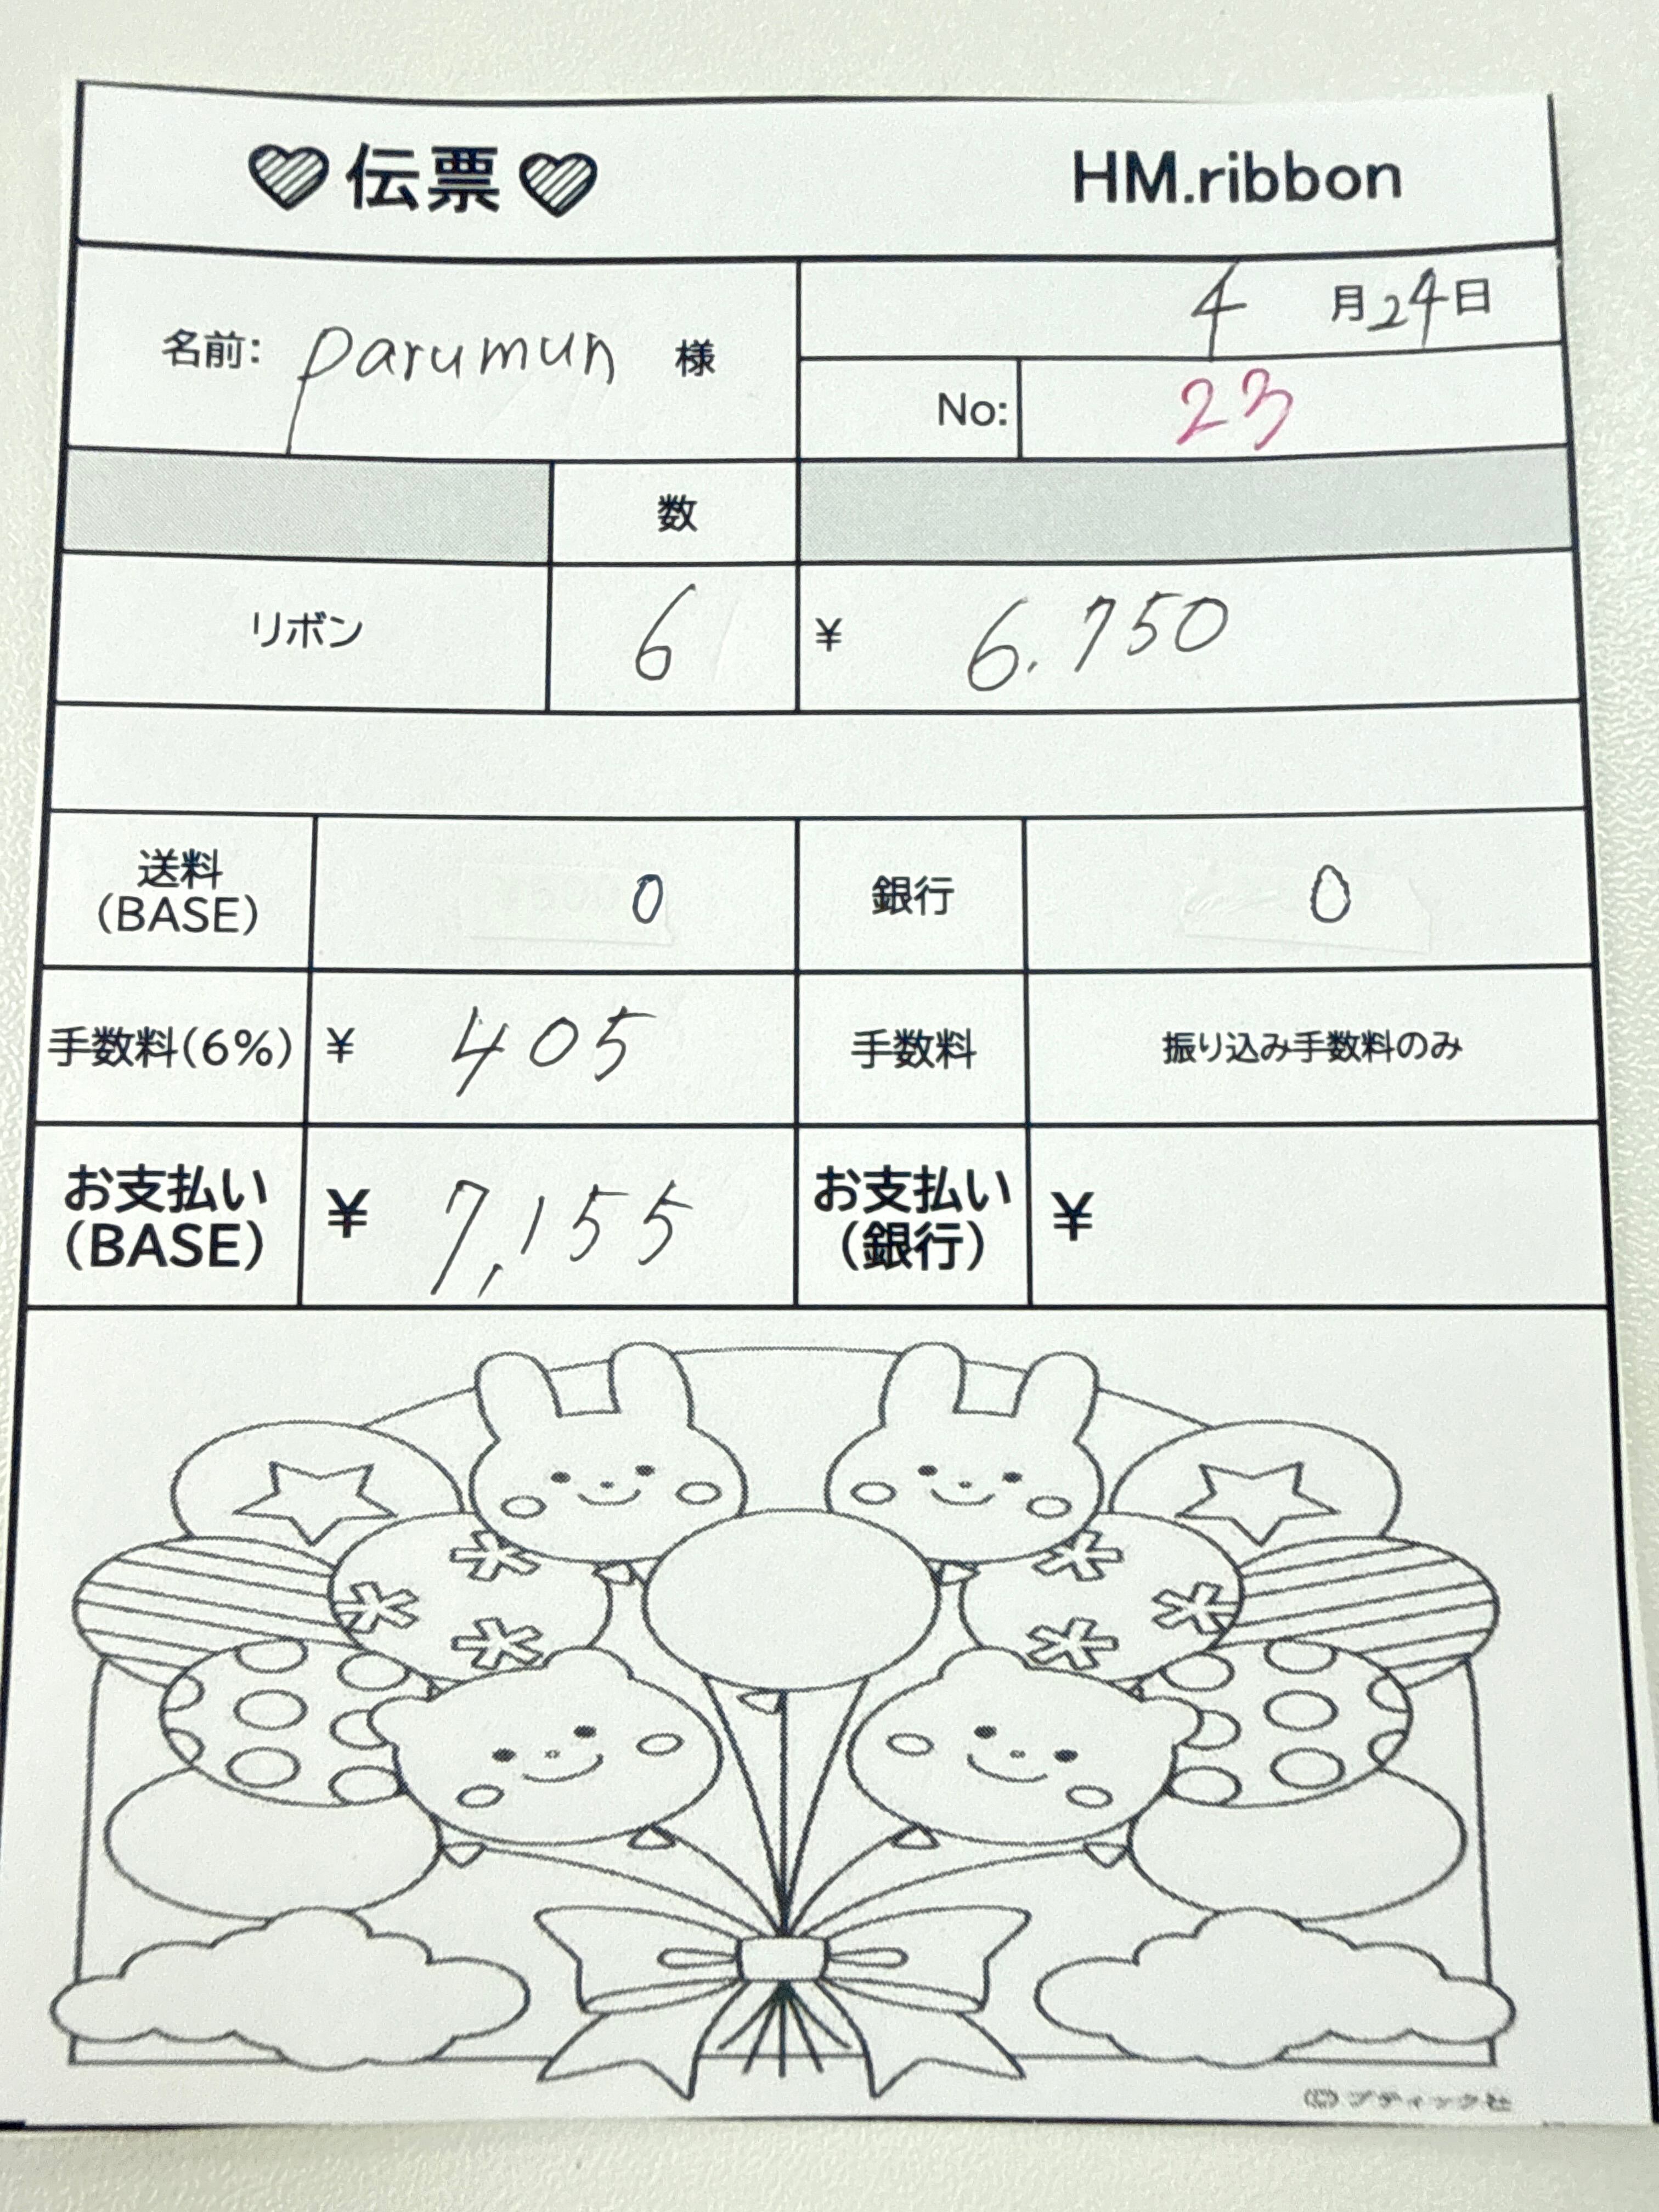 伝票 HM.ribbon
4月24日
名前: parumun 様
No: 23
数
リボン 6 ¥ 6.750
送料(BASE) 0 銀行 0
手数料(6%) ¥ 405 手数料 振り込み手数料のみ
お支払い(BASE) ¥ 7,155 お支払い(銀行) ¥
(C)ブティック社